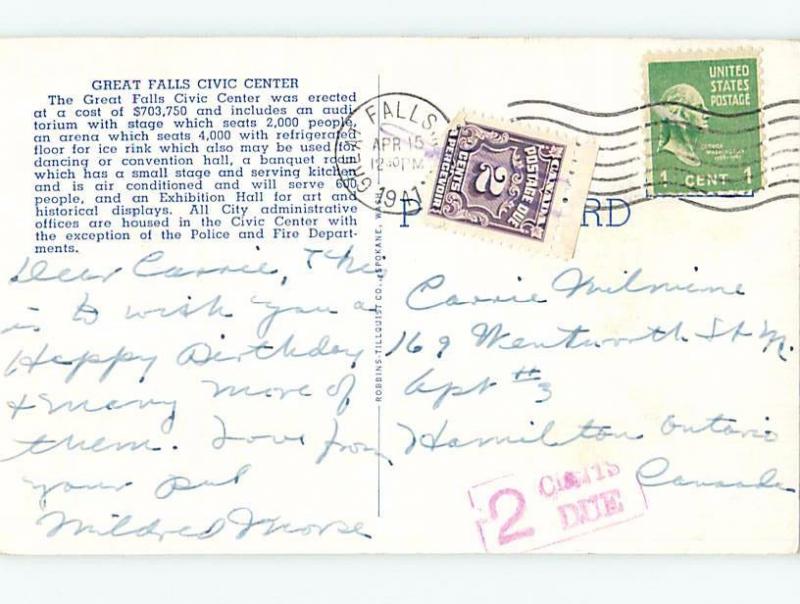 GREAT FALLS CIVIC CENTER
The Great Falls Civic Center was erected
at a cost of $703,750 and includes an audi-
torium with stage which seats 2,000 people,
an arena which seats 4,000 with refrigerated
floor for ice rink which also may be used for
dancing or convention hall, a banquet room
which has a small stage and serving kitchen
and is air conditioned and will serve
people, and an Exhibition Hall for art and
historical displays. All City administrative
offices are housed in the Civic Center with
the exception of the Police and Fire Depart-
ments.
Dear Carrie, The
is to wish you a
Happy Birthday
& many more of
them. Love from
your pal
Mildred Morse
ROBBINS-TILLQUIST CO., SPOKANE, WASH.
GREAT FALLS
APR 15
12 30 PM
CANADA
POSTAGE DUE
2
CENTS
UNITED
STATES
POSTAGE
1 CENT 1
P RD
Carrie Milmine
169 Wentworth St N.
Apt #3
Hamilton Ontario
Canada
2 CENTS
DUE